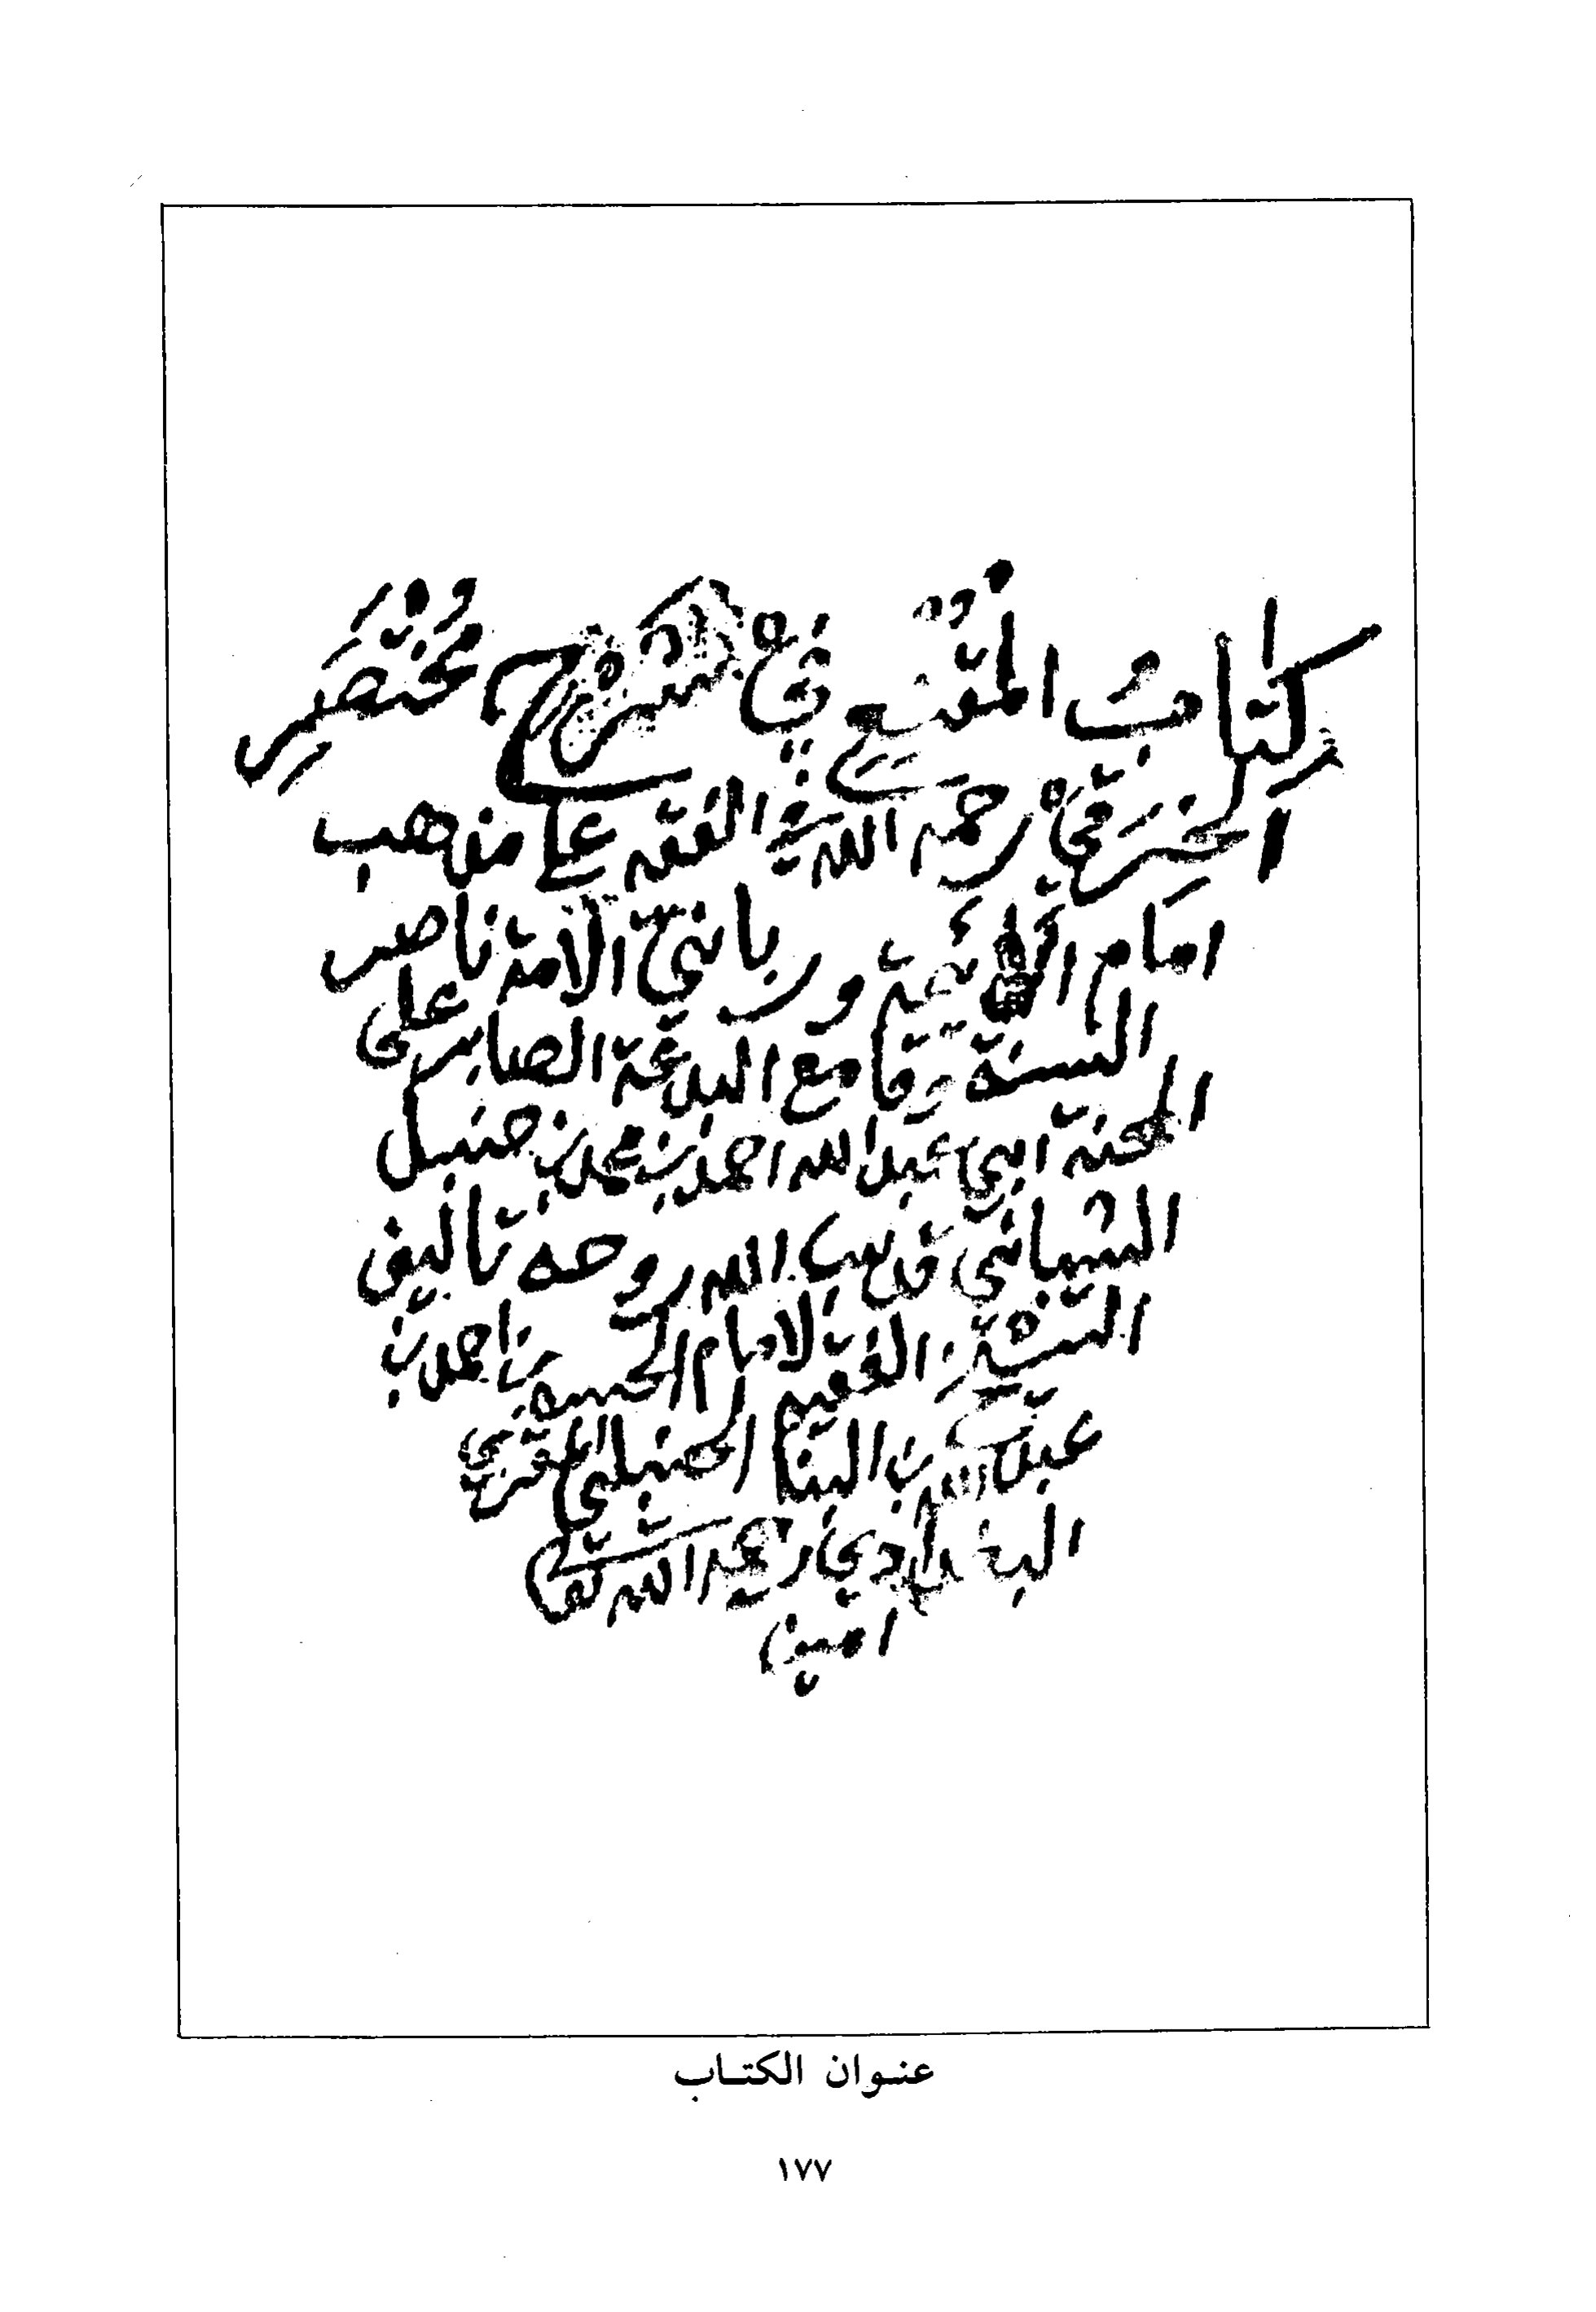 كتاب المقنع في شرح مختصر
الخرقي رحمه الله في الفقه على مذهب
امام الائمة ورباني الامة ناصر
السنة وقامع البدعة الصابر على
المحنة ابي عبد الله احمد بن محمد بن حنبل
الشيباني قدس الله روحه تاليف
الشيخ الفقيه الامام الحسن بن احمد بن
عبد الله بن البنا الحنبلي المقري
البغدادي رحمه الله تعالى
امين
عنوان الكتاب
١٧٧